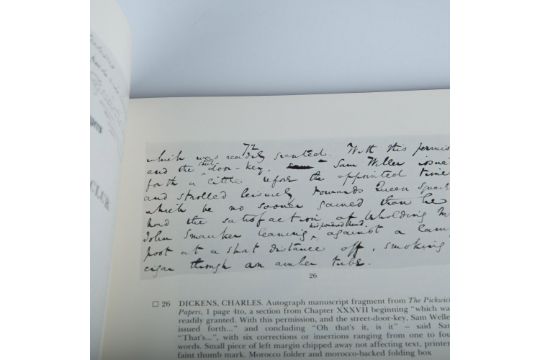 72
which was readily granted. With this permis
and the street door-key, Sam Weller issue
forth a little before the appointed time
and strolled leisurely towards Queen Squa
which he no sooner gained than he
had the satisfaction of beholding M
John Smauker leaning his powdered head against a lam
post at a short distance off, smoking
cigar through an amber tube.
26
□ 26 DICKENS, CHARLES. Autograph manuscript fragment from The Pickwic
Papers. 1 page 4to, a section from Chapter XXXVII beginning "which was
readily granted. With this permission, and the street-door-key, Sam Welle
issued forth..." and concluding "Oh that's it, is it" – said Sa
"That's...", with six corrections or insertions ranging from one to fou
words. Small piece of left margin chipped away not affecting text, printer
faint thumb mark. Morocco folder and morocco-backed folding box
CLUB